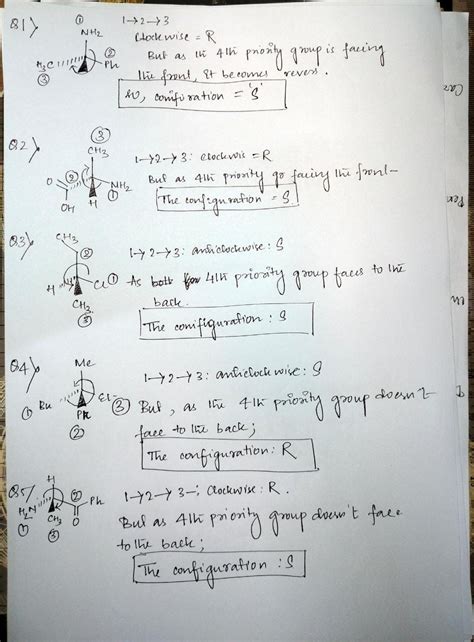 Q1)
①
NH2
②
Ph
H3C
③
1→2→3
Clockwise = R
But as the 4th priority group is facing
the front, it becomes revers.
so, configuration = 'S'
Q2)
③
CH3
O
②
OH
H
NH2
①
1→2→3: clockwis = R
But as 4th priority gp facing the front-
The configuration = S
Q3)
CH3
②
H
Cl ①
CH3
③
1→2→3: anticlockwise: S
As 4th priority group faces to the
back.
The configuration : S
Q4)
Me
① Br
Et
③
Ph
②
1→2→3: anticlock wise: S
But, as the 4th priority group doesn't
face to the back;
The configuration: R
Q5)
H
②
Ph
H2N
①
CH3
③
O
1→2→3-: Clockwise: R.
But as 4th priority group doesn't face
to the back;
The configuration : S